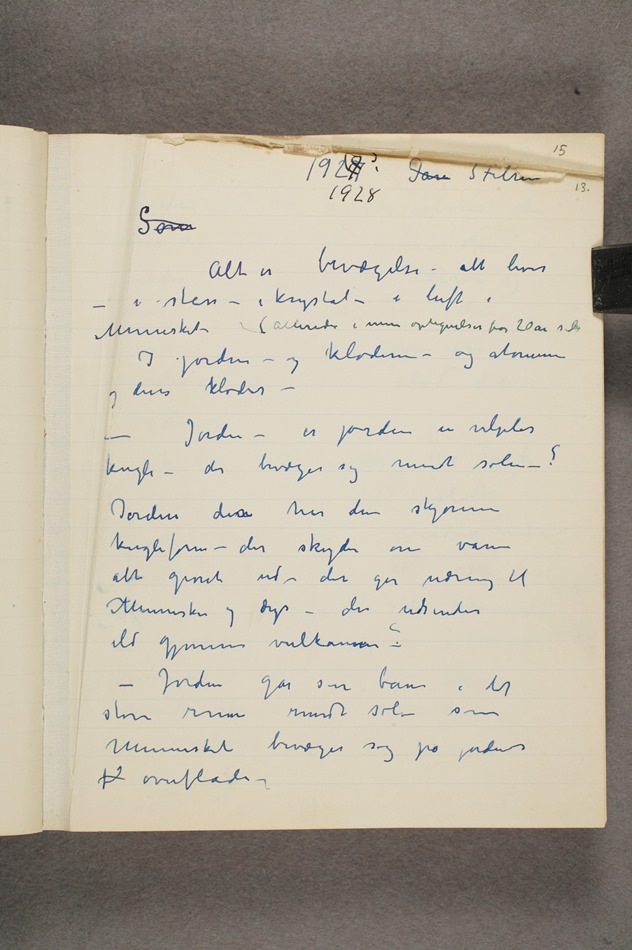 15
1927?
1928
13.
Som
Alt er bevægelse – alt lever
– i sten – i krystal – i luft i
Mennesket – (allerede i mine optegnelser for 20 år
I jorden – og kloderne – og atomerne
og deres kloder –
– Jorden – er jorden en
kugle – der bevæger sig rundt solen – ?
Jorden den har den skjønne
kugleform – der skyder
alt grønt ud – der gir næring til
Mennesker og dyr – der udsender
ild gjennem vulkaner – ?
– Jorden går sin bane i det
store rum rundt solen som
Mennesket bevæger sig på jordens
overflade –